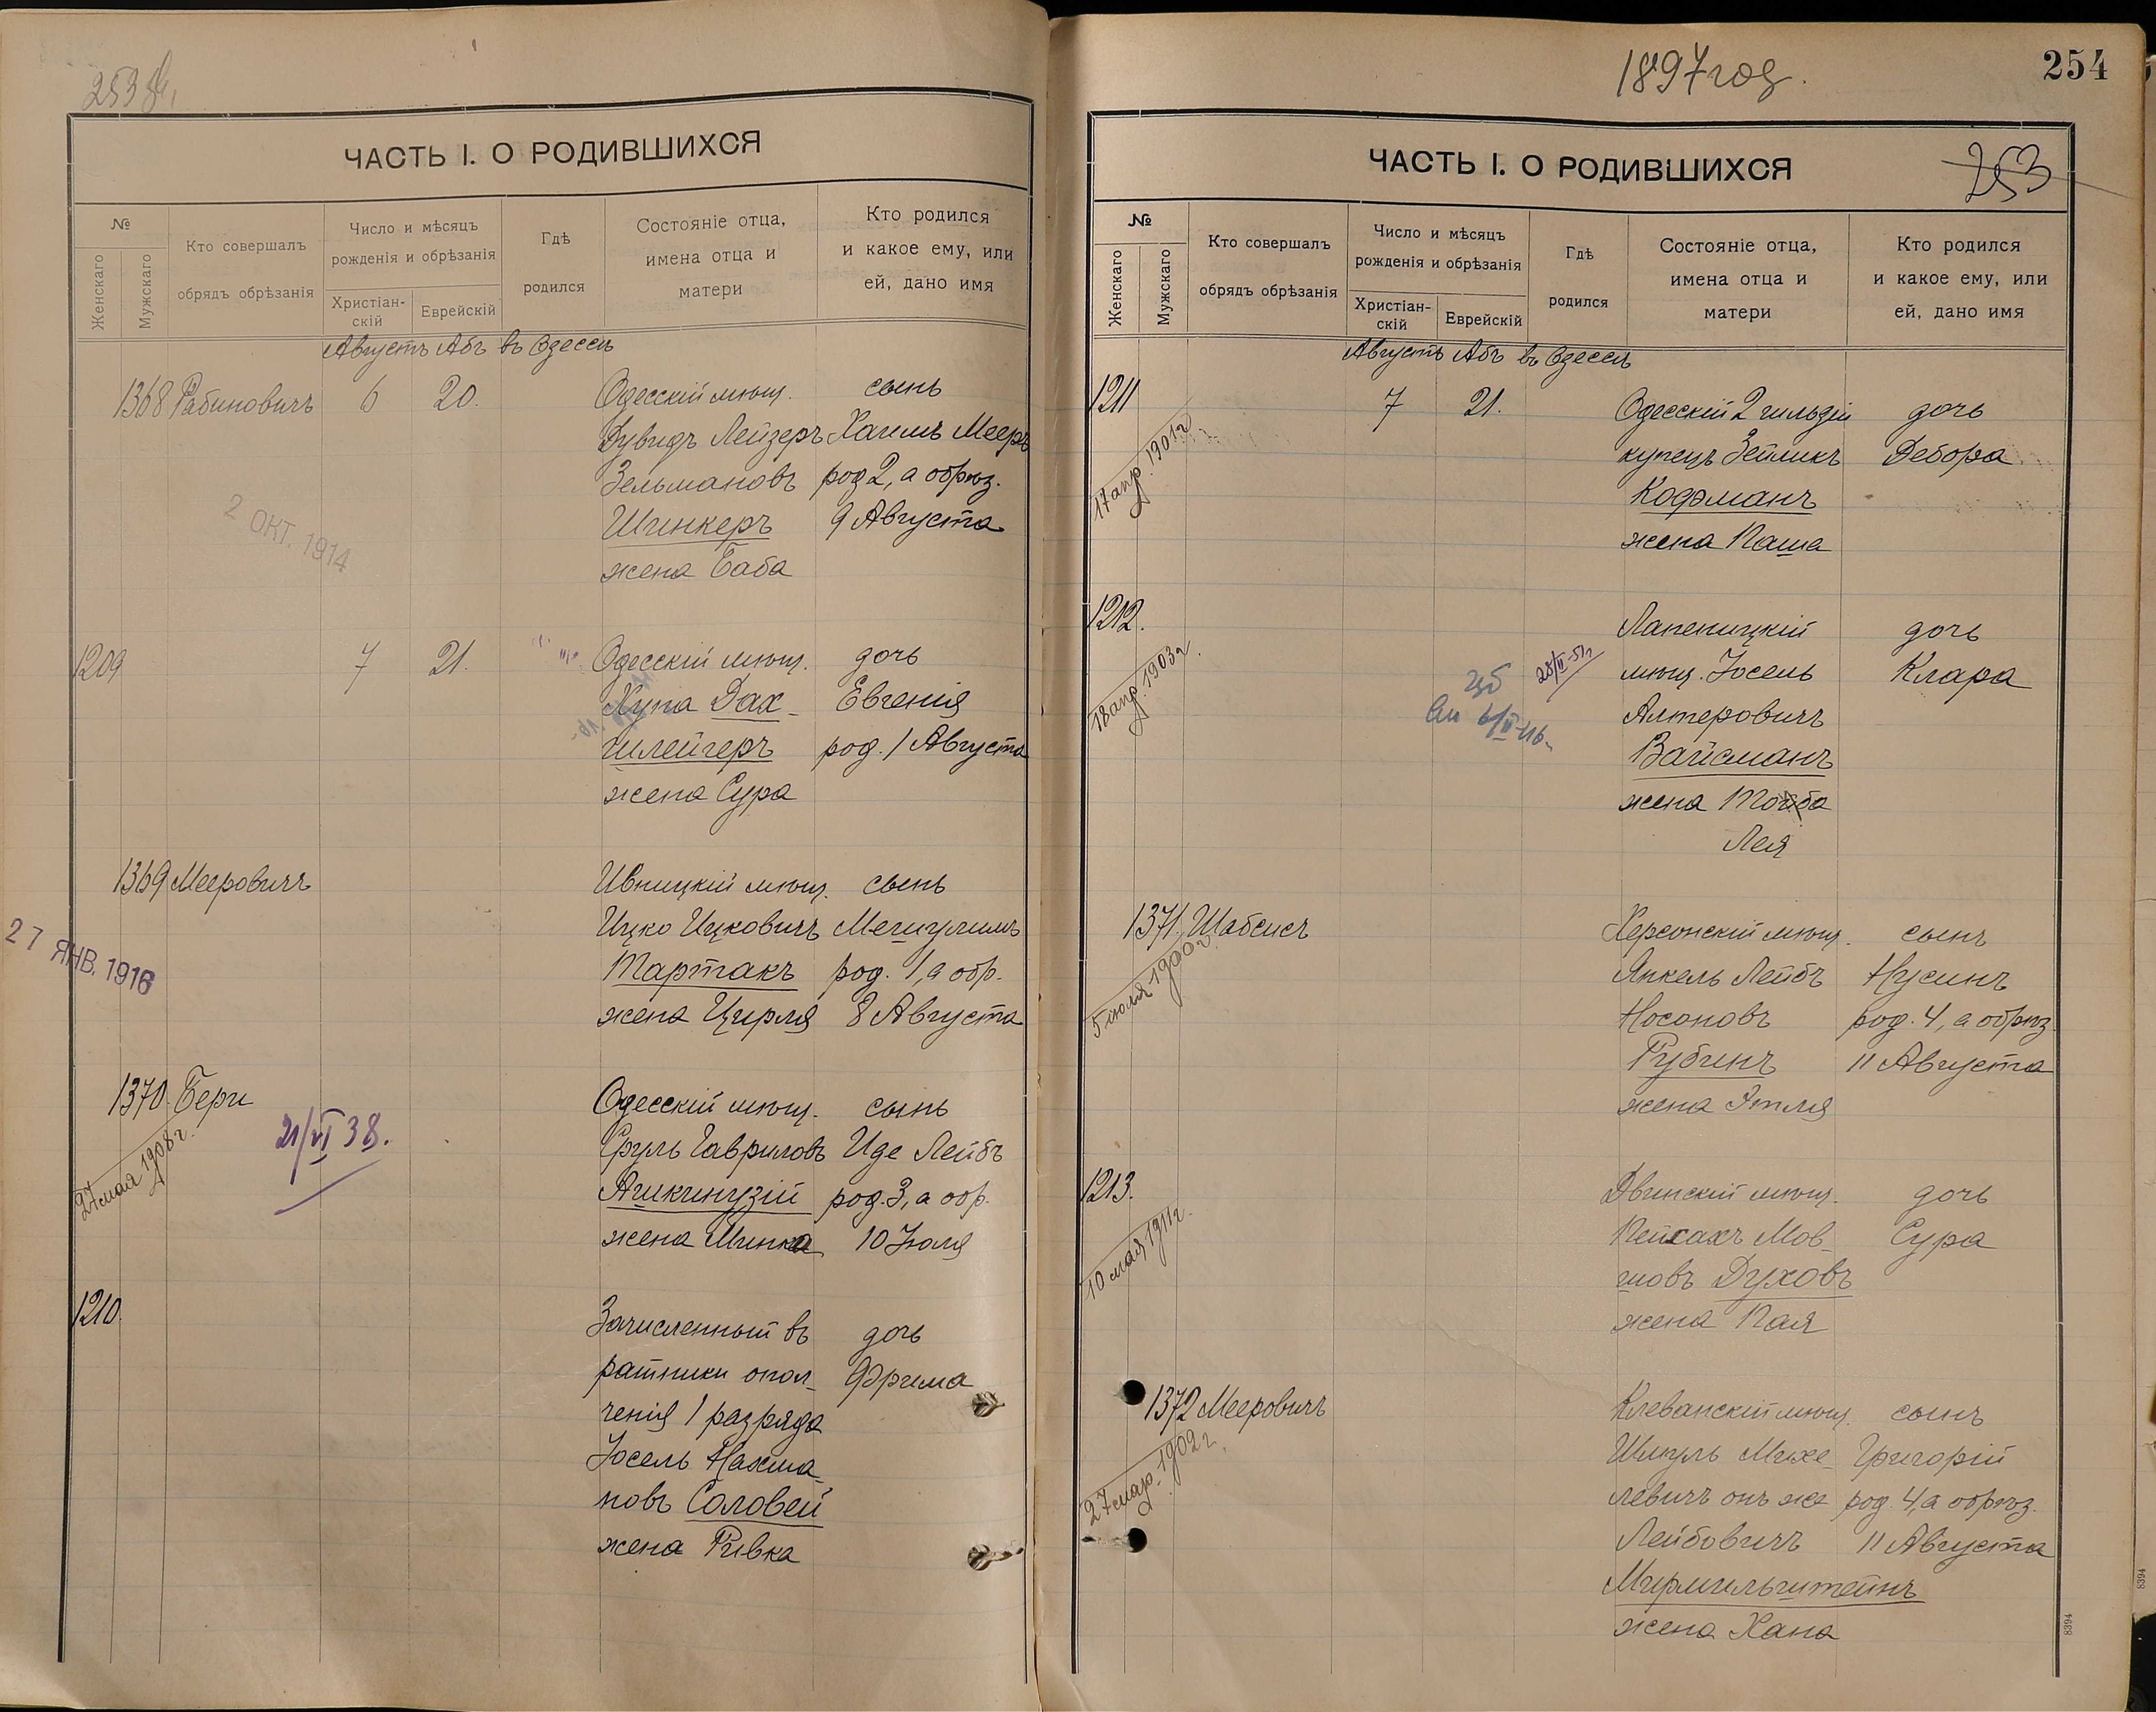 253
ЧАСТЬ I. О РОДИВШИХСЯ
№
Женскаго
Мужскаго
Кто совершалъ
обрядъ обрѣзанія
Число и мѣсяцъ
рожденія и обрѣзанія
Христіан-
скій
Еврейскій
Гдѣ
родился
Состояніе отца,
имена отца и
матери
Кто родился
и какое ему, или
ей, дано имя
Августъ Абъ въ Одессѣ
1368 Рабиновичъ 6 20. Одесскій мѣщ. сынъ
Дувидъ Лейзеръ Хаимъ Мееръ
Зельмановъ род 2, а обрѣз.
Шинкеръ 9 Августа
жена Баба
2 ОКТ. 1914
1209 7 21. Одесскій мѣщ. дочь
Хуна Дах- Евгенія
шлейгеръ род. 1 Августа
жена Сура
1369 Мееровичъ Ивницкій мѣщ. сынъ
Ицко Ицковичъ Мешулимъ
Тартакъ род. 1, а обр.
жена Цирля 8 Августа
27 ЯНВ. 1916
1370 Бери Одесскій мѣщ. сынъ
27 мая 1908 г.
21/VI 38.
Сруль Гавриловъ Иде Лейбъ
Ашкинузій род. 3, а обр.
жена Минка 10 Іюля
1210 Зачисленный въ дочь
ратники опол- Фрима
ченія 1 разряда
Іосель Нахма-
новъ Соловей
жена Ривка
1897 год.
254
ЧАСТЬ I. О РОДИВШИХСЯ
253
№
Женскаго
Мужскаго
Кто совершалъ
обрядъ обрѣзанія
Число и мѣсяцъ
рожденія и обрѣзанія
Христіан-
скій
Еврейскій
Гдѣ
родился
Состояніе отца,
имена отца и
матери
Кто родился
и какое ему, или
ей, дано имя
Августъ Абъ въ Одессѣ
1211 7 21. Одесскій 2 гильдіи дочь
17 апр. 1901 г.
купецъ Зейликъ Дебора
Кофманъ
жена Паша
1212. Лапеницкій дочь
18 апр. 1903 г.
28/II-51г
мѣщ. Іосель Клара
Алтеровичъ
Вайсманъ
жена Тойба
Лея
1371. Шабсисъ Херсонскій мѣщ. сынъ
5 іюля 1900 г.
Янкель Лейбъ Нусинъ
Носоновъ род. 4, а обрѣз.
Рубинъ 11 Августа
жена Этля
1213. Двинскій мѣщ. дочь
10 мая 1911 г.
Пейсахъ Мов- Сура
шовъ Духовъ
жена Пая
1372 Мееровичъ Клеванскій мѣщ. сынъ
27 мар. 1902 г.
Шмуль Михе- Григорій
левичъ онъ же род. 4, а обрѣз.
Лейбовичъ 11 Августа
Мирмильштейнъ
жена Хана
8394
8394